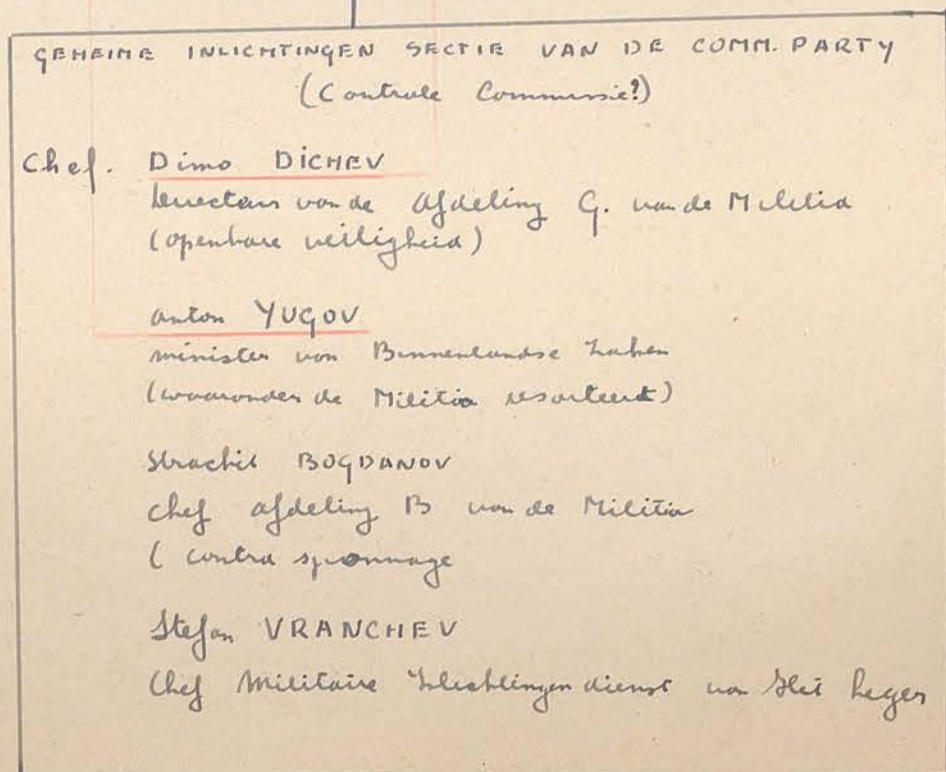 GEHEIME INLICHTINGEN SECTIE VAN DE COMM. PARTY
(Controle Commissie?)
Chef. Dimo DICHEV
Directeur van de afdeling G. van de Militia
(openbare veiligheid)
Anton YUGOV
minister van Binnenlandse Zaken
(waaronder de Militia resorteert)
Strachil BOGDANOV
Chef afdeling B van de Militia
( contra spionnage
Stefan VRANCHEV
Chef Militaire Inlichtingen dienst van Het Leger